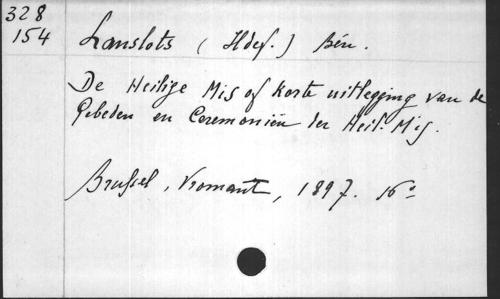 328
154
Lanslots (Hdef.) Bén.
De Heilige Mis of korte uitlegging van de
Gebeden en Ceremoniën der Heil. Mis.
Brussel, Vromant, 1897. 16°